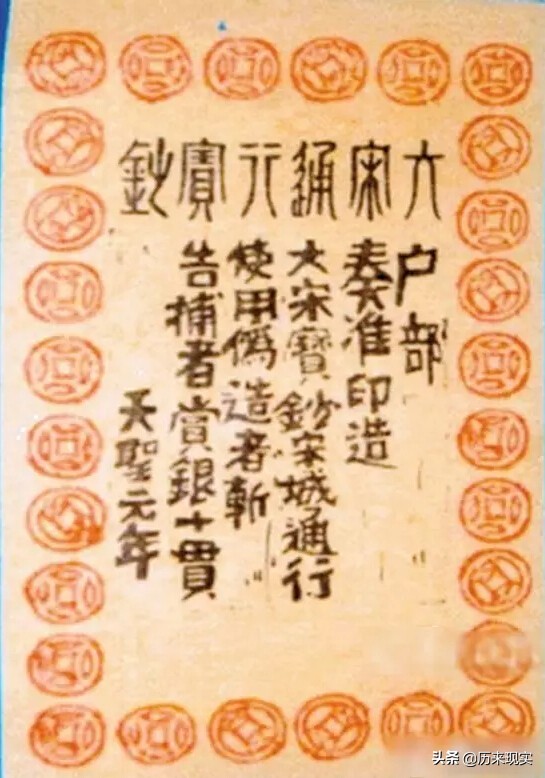 大宋通行寳鈔
户部
奏准印造
大宋寳鈔宋城通行
使用偽造者斬
告捕者賞銀十貫
天聖元年
头条 @历来现实